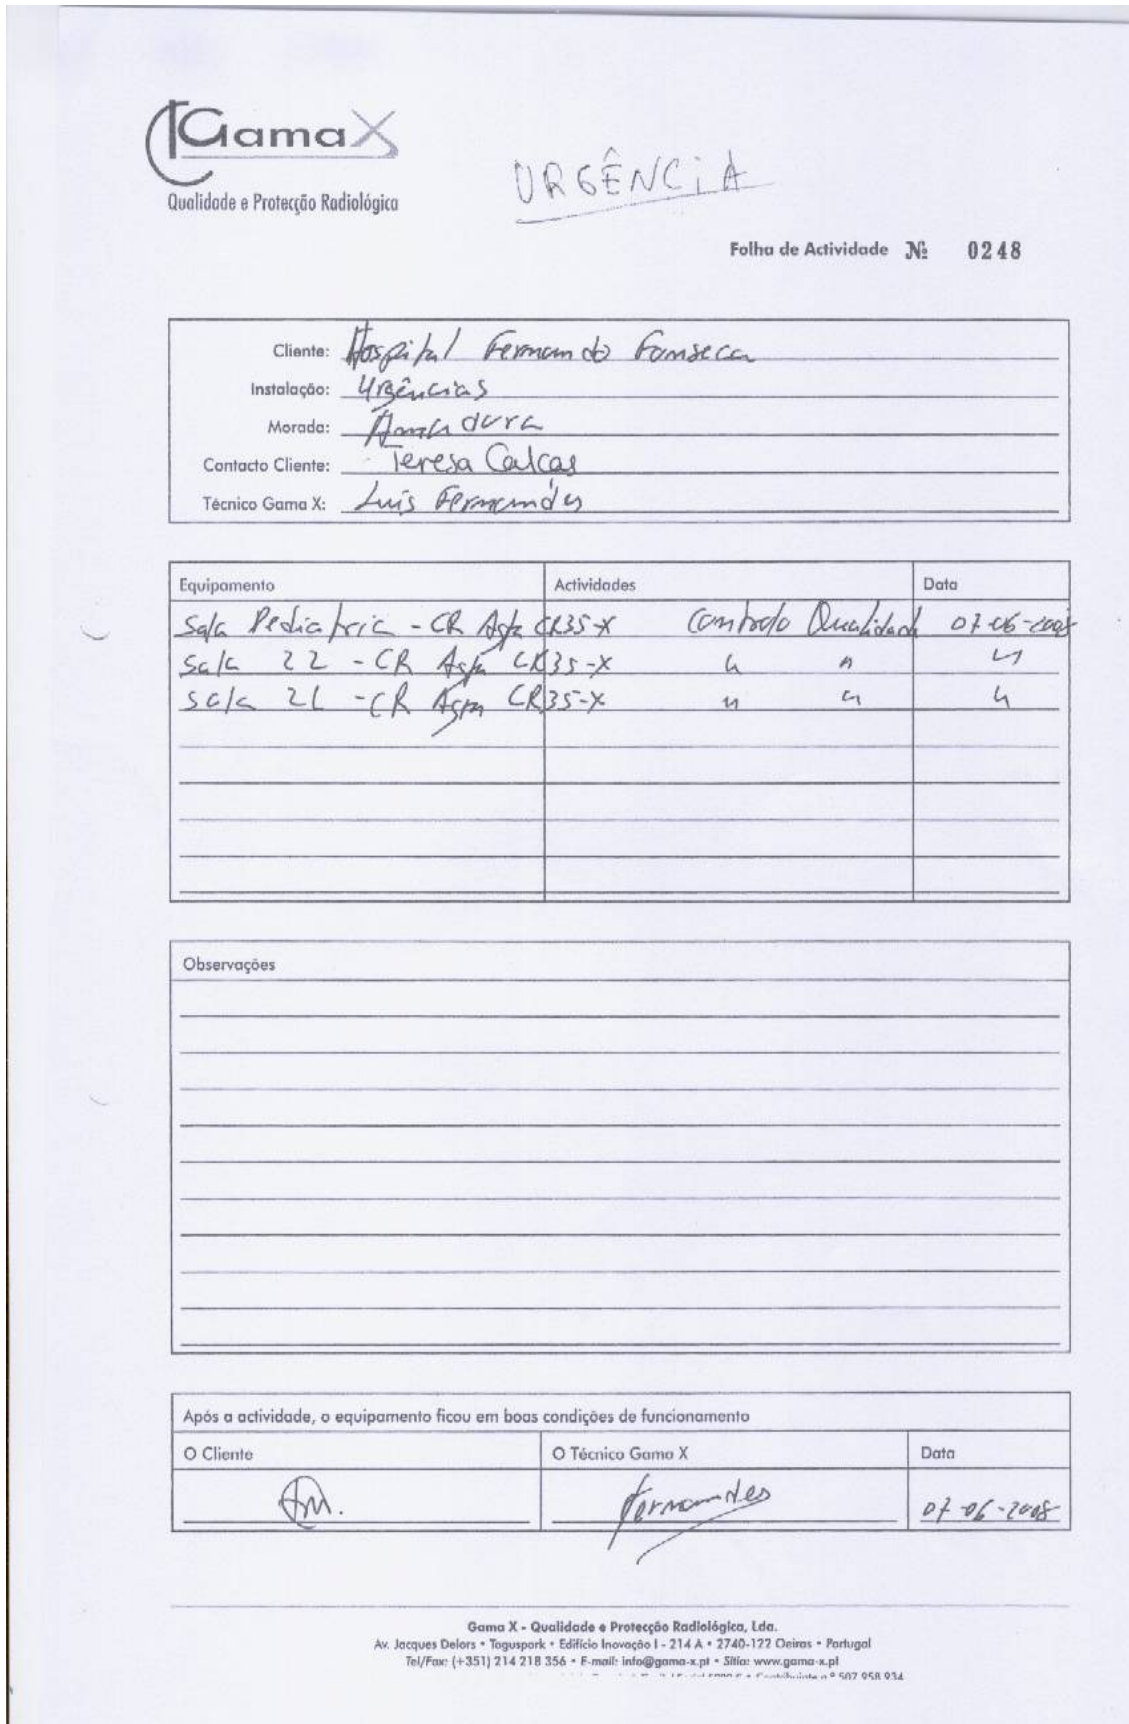 GamaX
Qualidade e Protecção Radiológica
URGÊNCIA
Folha de Actividade Nº 0248
Cliente: Hospital Fernando Fonseca
Instalação: Urgências
Morada: Amadora
Contacto Cliente: Teresa Calcas
Técnico Gama X: Luís Fernandes
Equipamento Actividades Data
Sala Pediatric - CR Agfa CR35-X Controlo Qualidade 07-06-2008
Sala 22 - CR Agfa CR35-X " " "
Sala 21 - CR Agfa CR35-X " " "
Observações
Após a actividade, o equipamento ficou em boas condições de funcionamento
O Cliente O Técnico Gama X Data
Fernandes 07-06-2008
Gama X - Qualidade e Protecção Radiológica, Lda.
Av. Jacques Delors • Taguspark • Edifício Inovação I - 214 A • 2740-122 Oeiras • Portugal
Tel/Fax: (+351) 214 218 356 • E-mail: info@gama-x.pt • Sítio: www.gama-x.pt
Contribuinte n.º 507 958 934